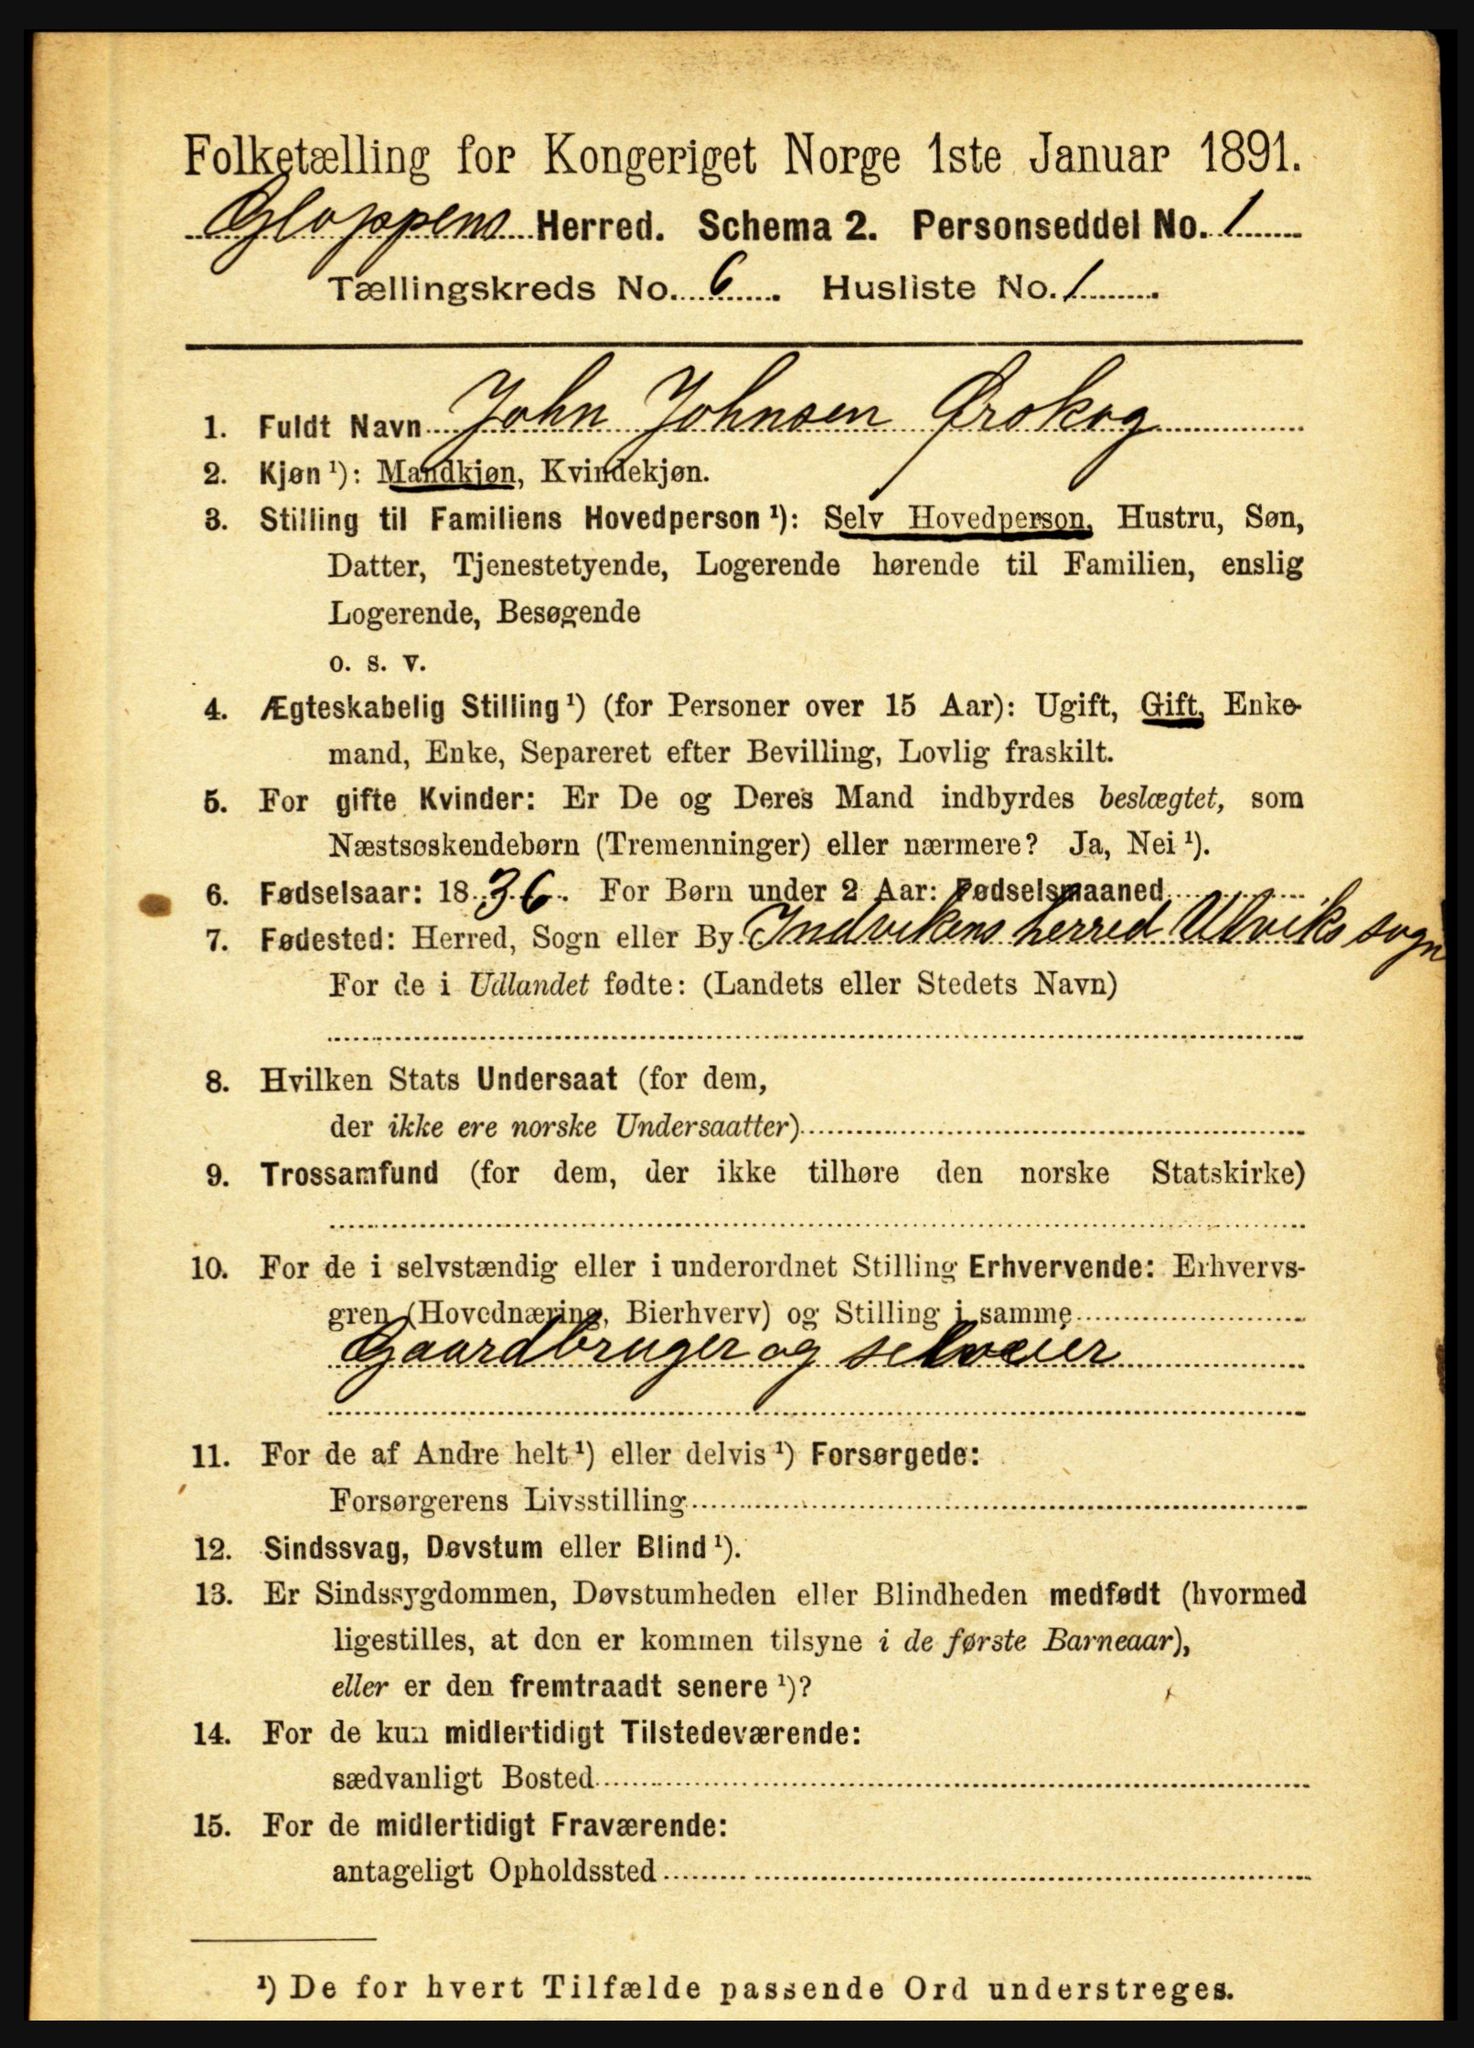 Folketælling for Kongeriget Norge 1ste Januar 1891.
Gloppens Herred. Schema 2. Personseddel No. 1
Tællingskreds No. 6. Husliste No. 1.
1. Fuldt Navn John Johnsen Ørskog
2. Kjøn ¹): Mandkjøn, Kvindekjøn.
3. Stilling til Familiens Hovedperson ¹): Selv Hovedperson, Hustru, Søn,
Datter, Tjenestetyende, Logerende hørende til Familien, enslig
Logerende, Besøgende
o. s. v.
4. Ægteskabelig Stilling ¹) (for Personer over 15 Aar): Ugift, Gift, Enke-
mand, Enke, Separeret efter Bevilling, Lovlig fraskilt.
5. For gifte Kvinder: Er De og Deres Mand indbyrdes beslægtet, som
Næstsøskendebørn (Tremenninger) eller nærmere? Ja, Nei ¹).
6. Fødselsaar: 1836. For Børn under 2 Aar: Fødselsmaaned
7. Fødested: Herred, Sogn eller By Indvikens herred Utviks sogn
For de i Udlandet fødte: (Landets eller Stedets Navn)
8. Hvilken Stats Undersaat (for dem,
der ikke ere norske Undersaatter)
9. Trossamfund (for dem, der ikke tilhøre den norske Statskirke)
10. For de i selvstændig eller i underordnet Stilling Erhvervende: Erhvervs-
gren (Hovednæring, Bierhverv) og Stilling i samme
Gaardbruger og selveier
11. For de af Andre helt ¹) eller delvis ¹) Forsørgede:
Forsørgerens Livsstilling
12. Sindssvag, Døvstum eller Blind ¹).
13. Er Sindssygdommen, Døvstumheden eller Blindheden medfødt (hvormed
ligestilles, at den er kommen tilsyne i de første Barneaar),
eller er den fremtraadt senere ¹)?
14. For de kun midlertidigt Tilstedeværende:
sædvanligt Bosted
15. For de midlertidigt Fraværende:
antageligt Opholdssted
¹) De for hvert Tilfælde passende Ord understreges.